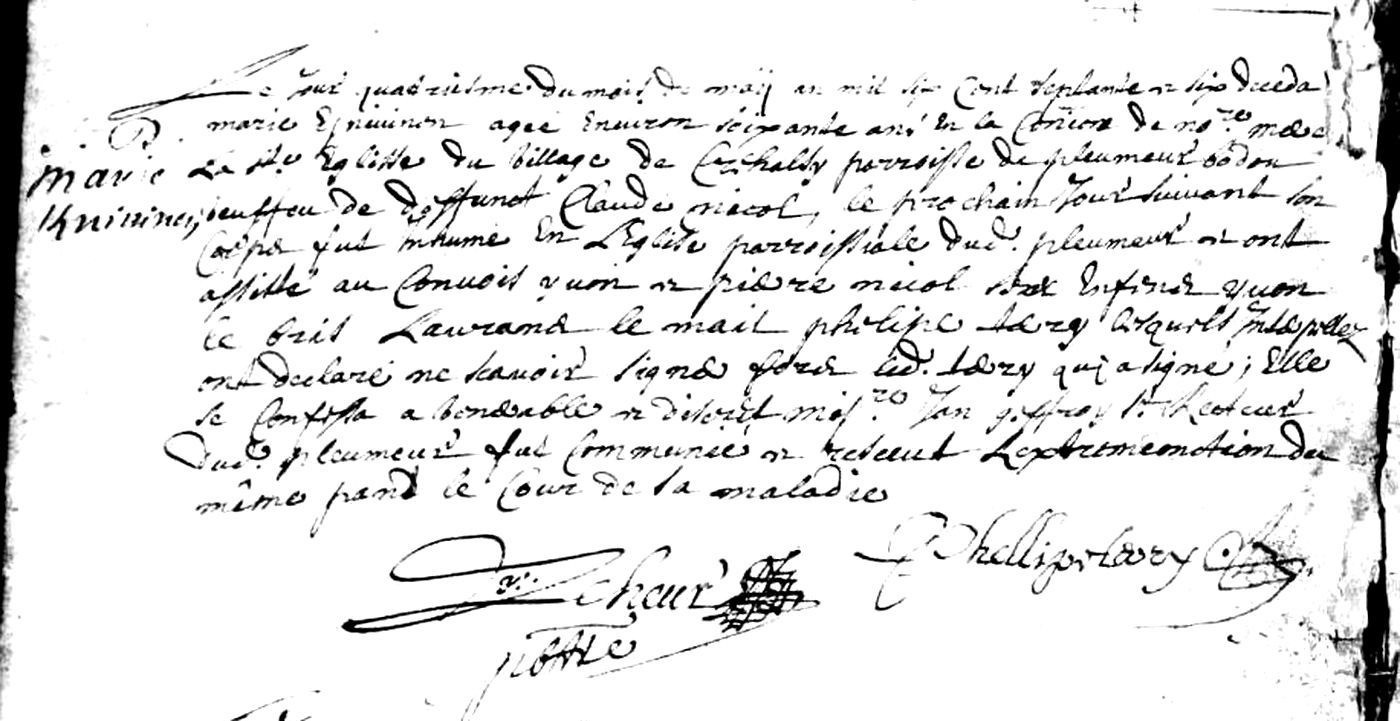 Le jour quatriesme du mois de maÿ an mil six cent septante et six deceda
marie Knivinen agee environ soixante ans en la Co[...]on de nore mere
marie
Knivinen
La Ste Eglisse du village de parroisse de pleumeur bodou
veuffeu de deffunct Claude nicol, le prochain jour suivant son
Corps fut inhumé en L'Eglise parroissiale dud. pleumeur et ont
assisté au Convois yvon et pierre nicol ses enfens yvon
le bris Laurans le mait phelipe lesquels interpellez
ont declaré ne scavoir signer fors led. qui a signé; Elle
se Confessa a venerable et discret misre Jan geffroy Sr Recteur
dud. pleumeur fut Communiée et receut L'extremeonction du
même pand le Cour de sa maladie
Phellipe
ptre